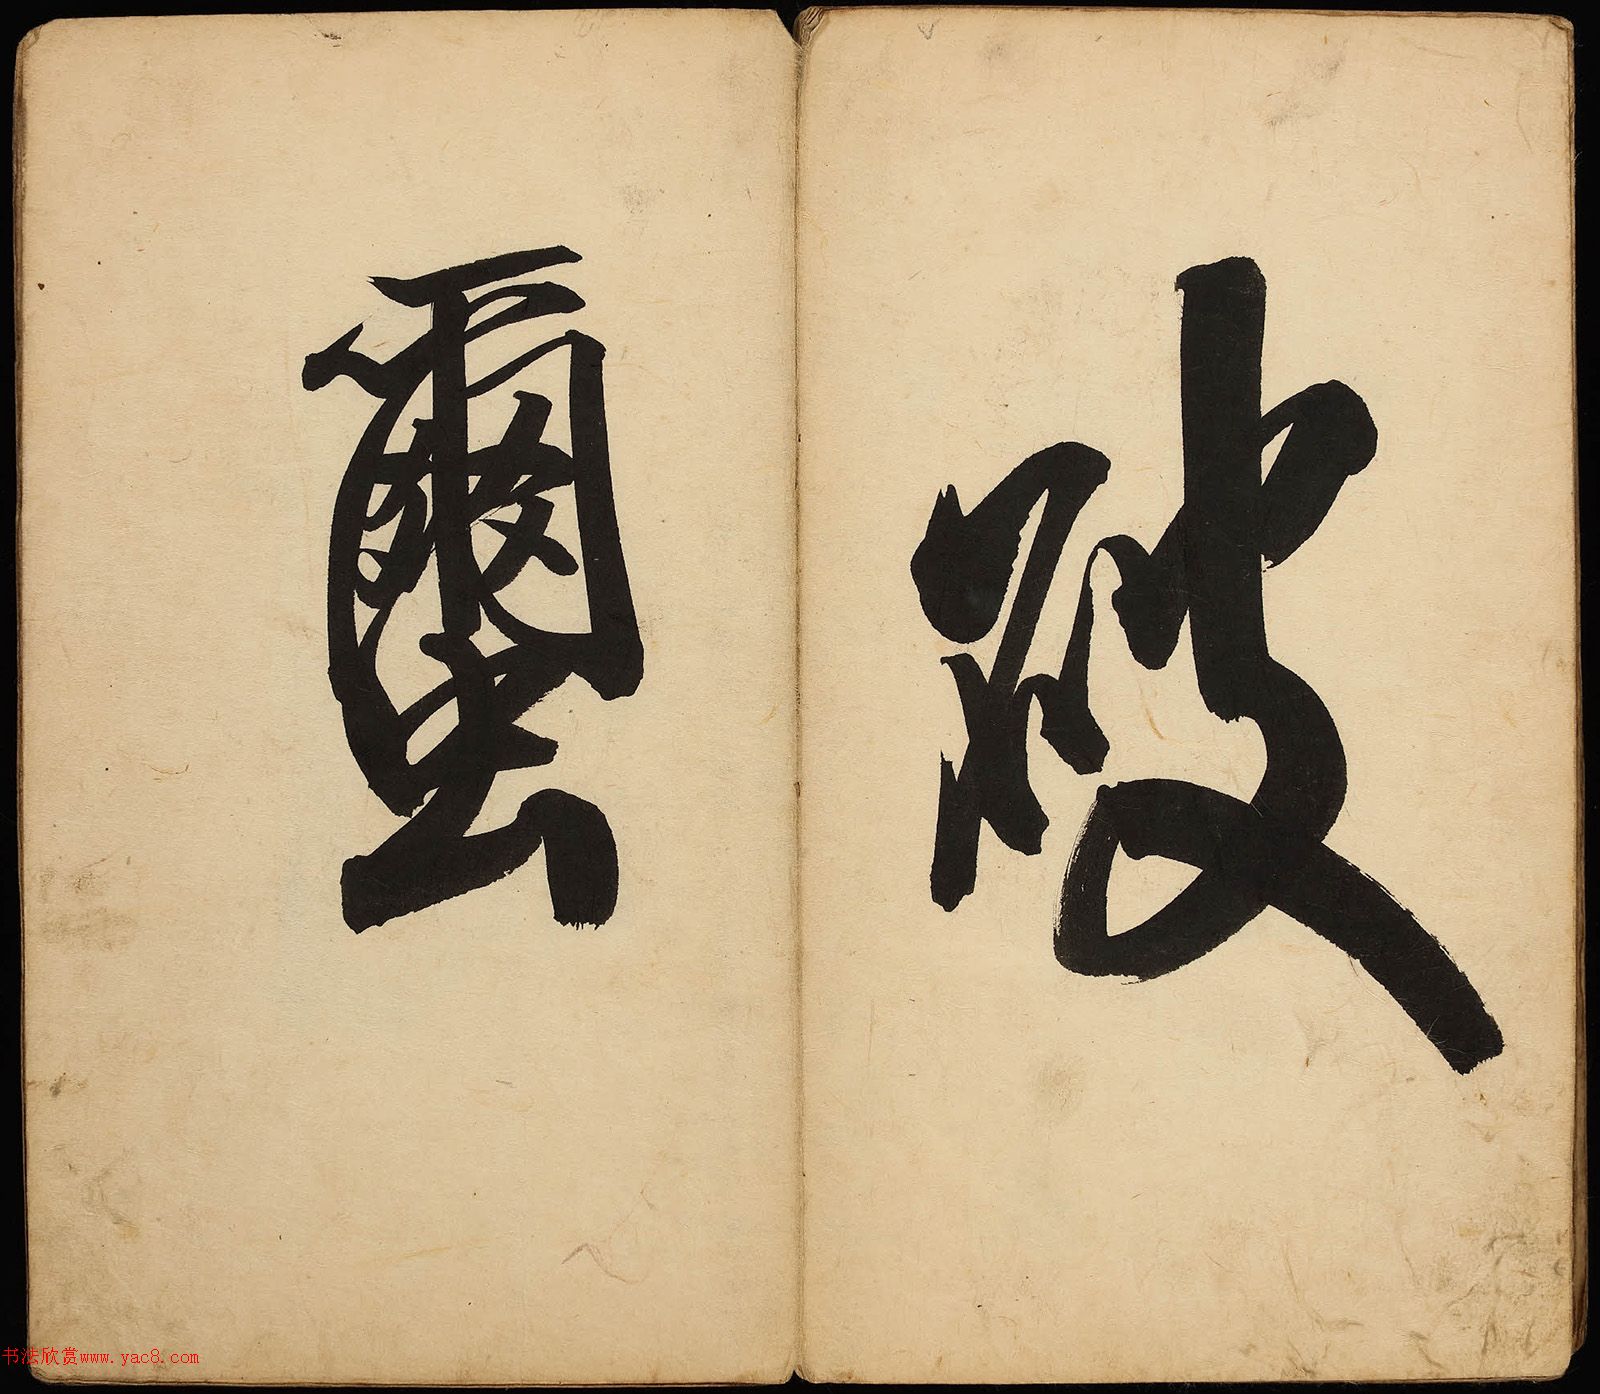 破
蠒
书法欣赏www.yac8.com